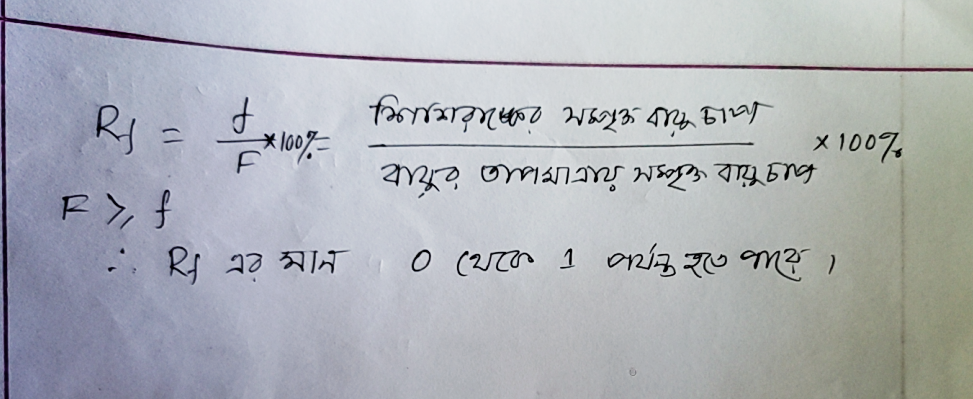 Rf = f/F ×100% = শিশিরাঙ্কের সম্পৃক্ত বায়ু চাপ / বায়ুর তাপমাত্রায় সম্পৃক্ত বায়ু চাপ × 100%
F ⩾ f
∴ Rf এর মান 0 থেকে 1 পর্যন্ত হতে পারে ।